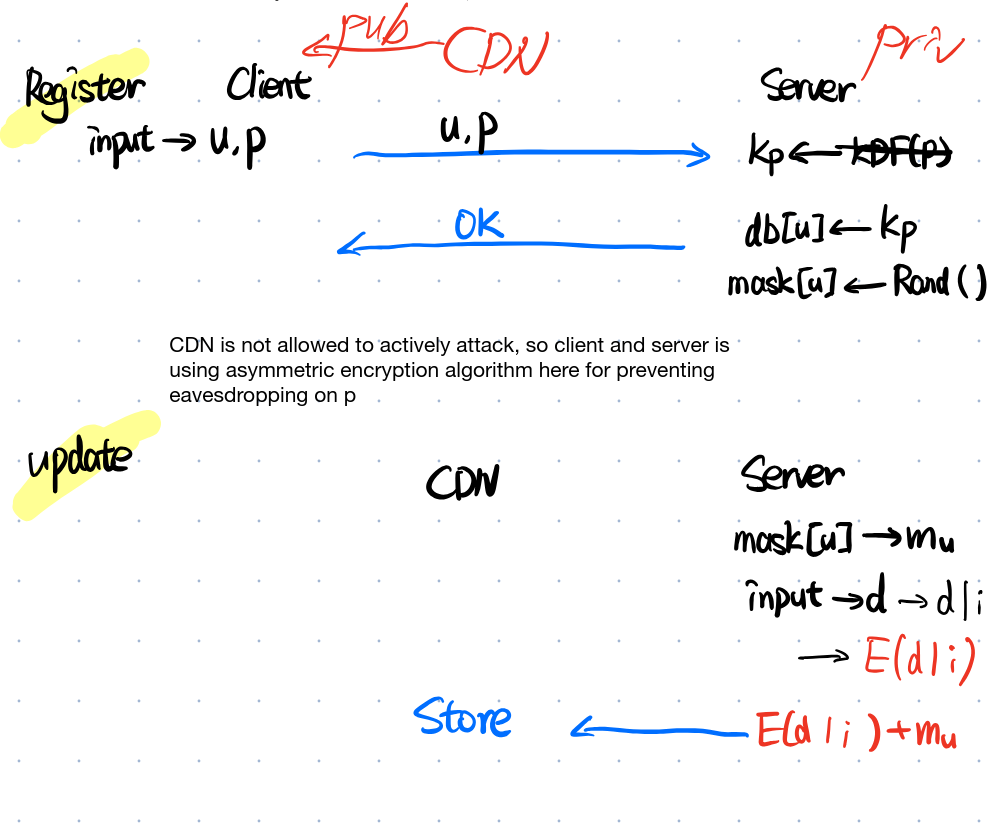 pub CDN priv
Register Client Server
input → u, p
u, p
kp ← KDF(p)
OK
db[u] ← kp
mask[u] ← Rand()
CDN is not allowed to actively attack, so client and server is
using asymmetric encryption algorithm here for preventing
eavesdropping on p
update
CDN Server
mask[u] → mu
input → d → d|i
→ E(d|i)
Store ← E(d|i)+mu